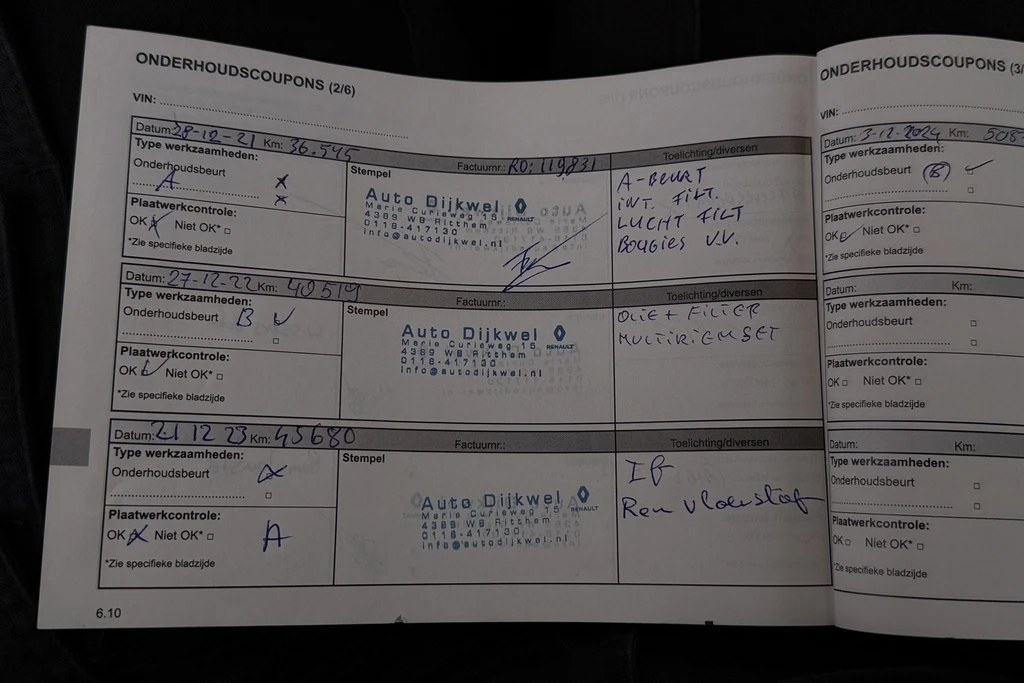 ONDERHOUDSCOUPONS (2/6)
VIN:
Datum: 28-12-21 Km: 36.545 Factuurnr.: RO: 119831 Toelichting/diversen
Type werkzaamheden:
Onderhoudsbeurt x
A x
Plaatwerkcontrole:
OK x Niet OK* □
*Zie specifieke bladzijde
Stempel
Auto Dijkwel
RENAULT
Marie Curieweg 15
4389 WB Ritthem
0118-417130
info@autodijkwel.nl
A-BEURT
INT. FILT.
LUCHT FILT
BOUGIES V.V.
Datum: 27-12-22 Km: 40519 Factuurnr.: Toelichting/diversen
Type werkzaamheden:
Onderhoudsbeurt B ✓
□
Plaatwerkcontrole:
OK ✓ Niet OK* □
*Zie specifieke bladzijde
Stempel
Auto Dijkwel
RENAULT
Marie Curieweg 15
4389 WB Ritthem
0118-417130
info@autodijkwel.nl
OLIE + FILTER
MULTIRIEMSET
Datum: 21 12 23 Km: 45680 Factuurnr.: Toelichting/diversen
Type werkzaamheden:
Onderhoudsbeurt
□
Plaatwerkcontrole:
OK x Niet OK* □ A
*Zie specifieke bladzijde
Stempel
Auto Dijkwel
RENAULT
Marie Curieweg 15
4389 WB Ritthem
0118-417130
info@autodijkwel.nl
Rem vloeistof
6.10
ONDERHOUDSCOUPONS (3/
VIN:
Datum: 3-12-2024 Km: 508
Type werkzaamheden:
Onderhoudsbeurt (B) ✓
□
Plaatwerkcontrole:
OK ✓ Niet OK* □
*Zie specifieke bladzijde
Datum: Km:
Type werkzaamheden:
Onderhoudsbeurt □
□
Plaatwerkcontrole:
OK □ Niet OK* □
*Zie specifieke bladzijde
Datum: Km:
Type werkzaamheden:
Onderhoudsbeurt □
□
Plaatwerkcontrole:
OK □ Niet OK* □
*Zie specifieke bladzijde